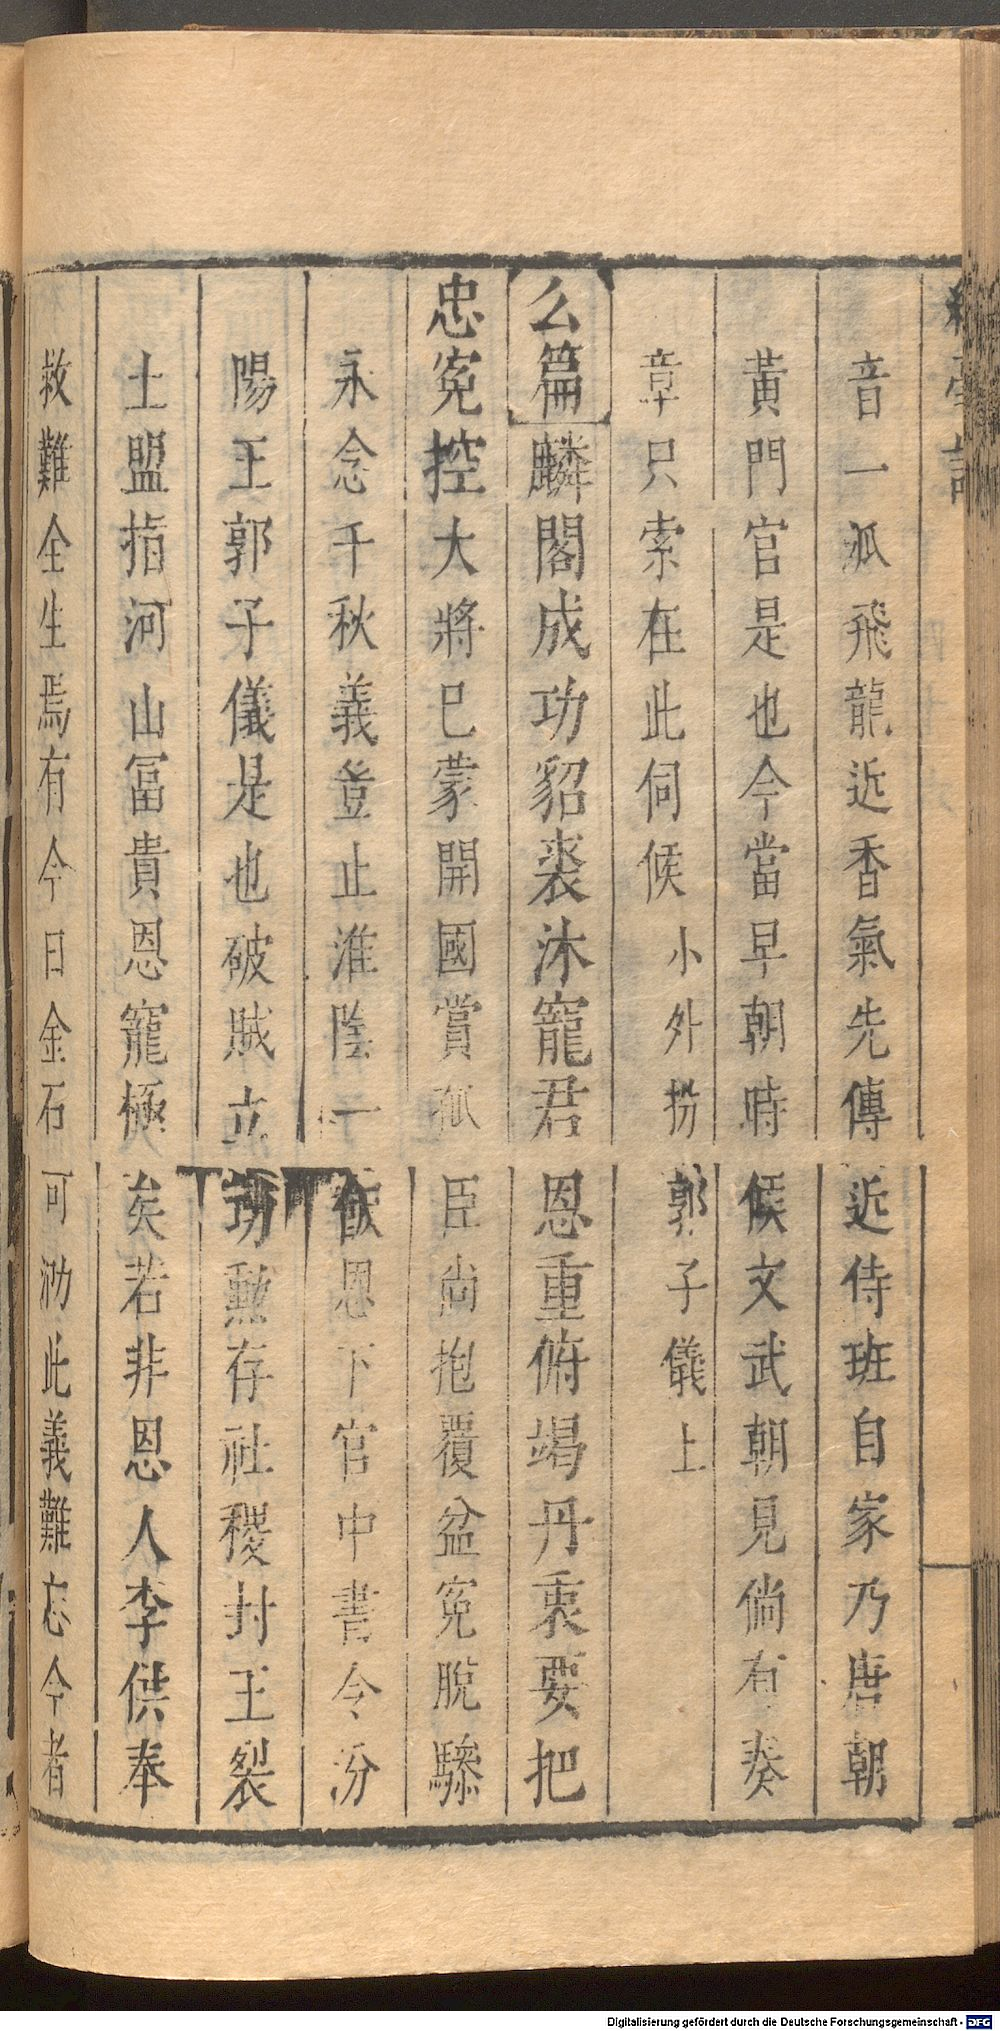 音一派飛龍近香氣先傳近侍班自家乃唐朝
黃門官是也今當早朝時候文武朝見倘有奏
章只索在此伺候小外扮郭子儀上
么篇麟閣成功貂裘沐寵君恩重俯竭丹衷要把
忠冤控大將已蒙開國賞孤臣尚抱覆盆冤脫驂
永念千秋義豈止淮陰一飯恩下官中書令汾
陽王郭子儀是也破賊立功勲存社稷封王裂
土盟指河山冨貴恩寵極矣若非恩人李供奉
救難全生焉有今日金石可泐此義難忘今者
Digitalisierung gefördert durch die Deutsche Forschungsgemeinschaft - DFG